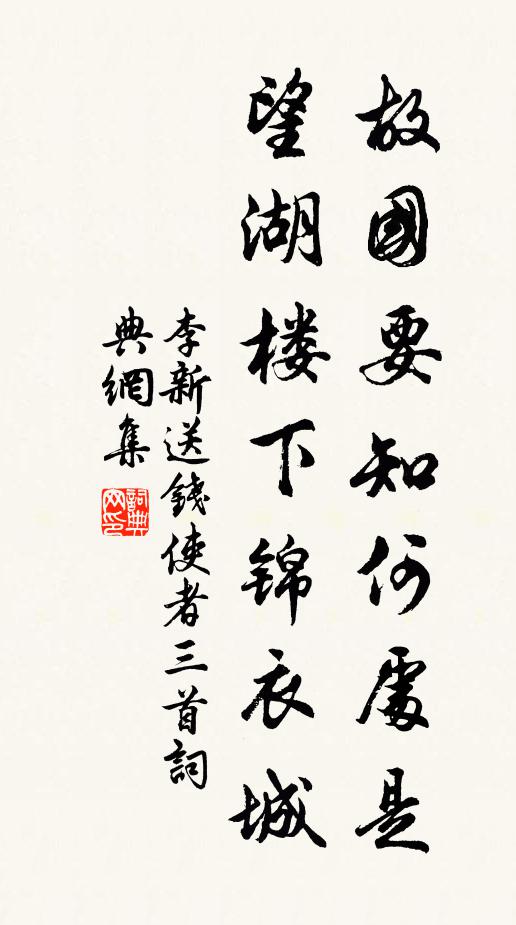 故國要知何處是
望湖楼下锦衣城
李新送錢使者三首詞
典網集
詞典网印